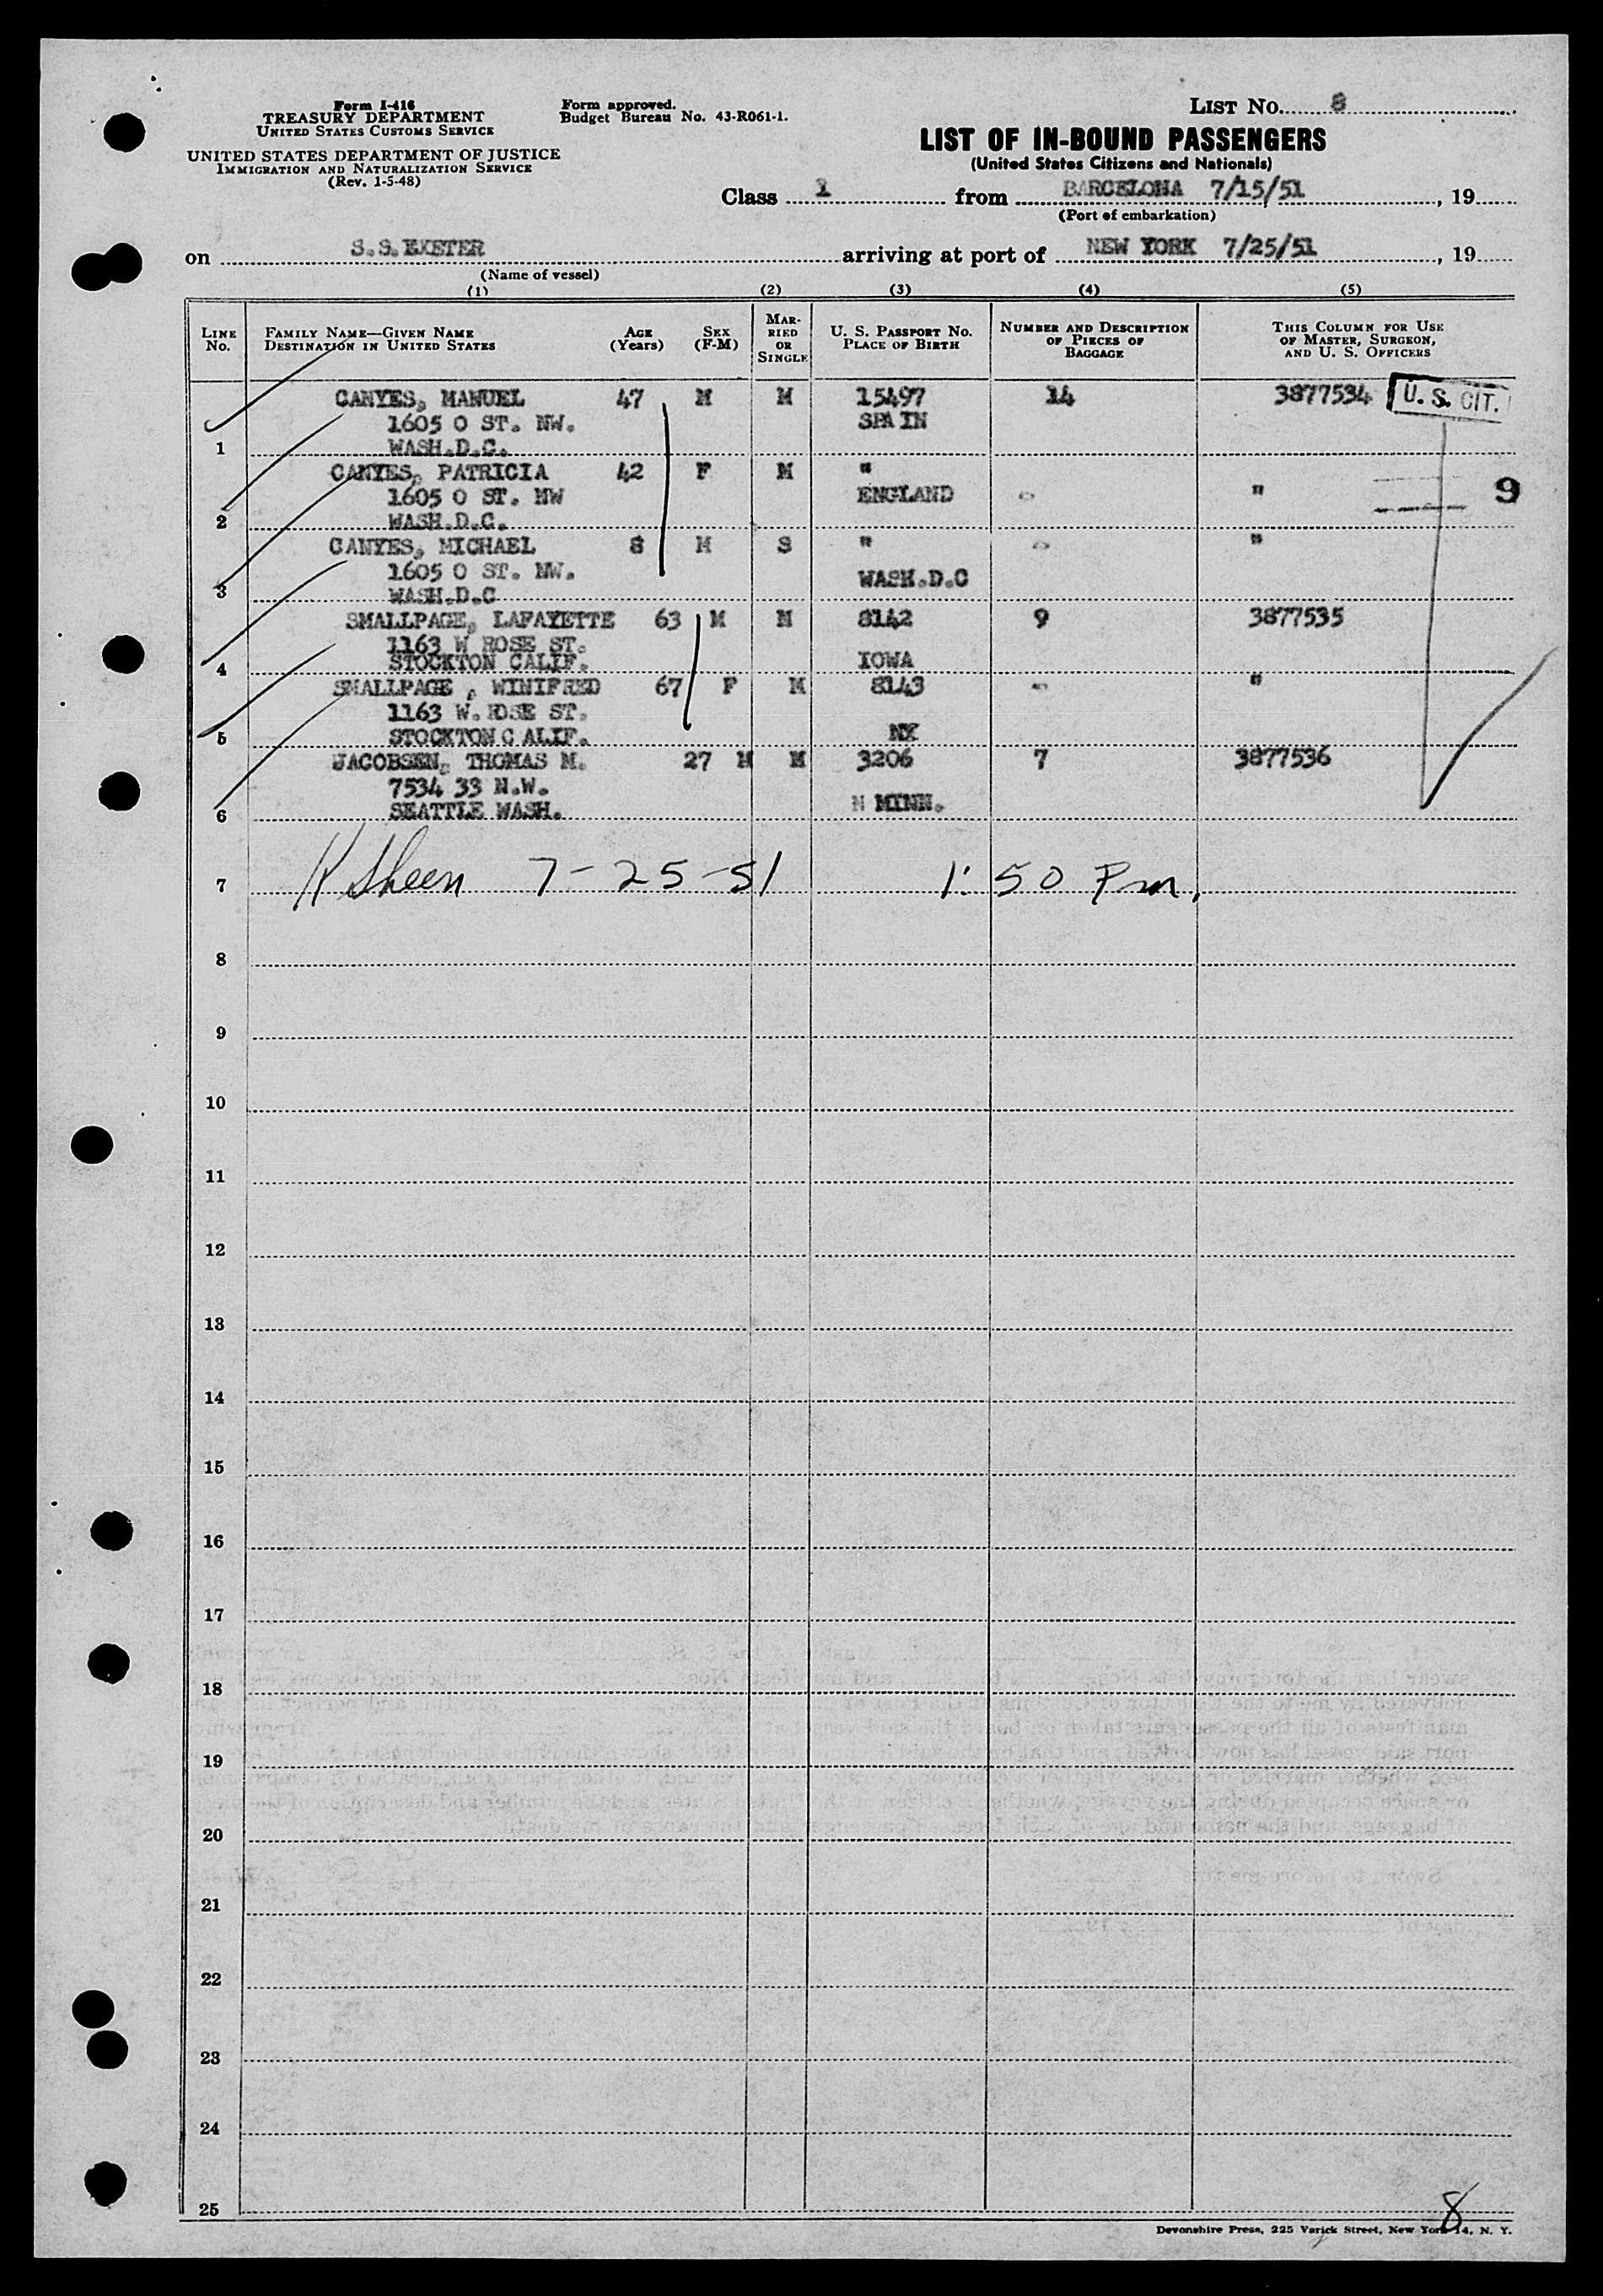 Form I-416
TREASURY DEPARTMENT
UNITED STATES CUSTOMS SERVICE
UNITED STATES DEPARTMENT OF JUSTICE
IMMIGRATION AND NATURALIZATION SERVICE
(Rev. 1-5-48)
Form approved.
Budget Bureau No. 43-R061-1.
LIST NO. 8
LIST OF IN-BOUND PASSENGERS
(United States Citizens and Nationals)
Class 1 from BARCELONA 7/15/51, 19
(Port of embarkation)
on S.S. EXETER arriving at port of NEW YORK 7/25/51, 19
(Name of vessel)
(1) (2) (3) (4) (5)
LINE NO. FAMILY NAME—GIVEN NAME DESTINATION IN UNITED STATES AGE (Years) SEX (F-M) MARRIED OR SINGLE U. S. PASSPORT NO. PLACE OF BIRTH NUMBER AND DESCRIPTION OF PIECES OF BAGGAGE THIS COLUMN FOR USE OF MASTER, SURGEON, AND U. S. OFFICERS
CANYES, MANUEL 47 M M 15497 14 3877534 U. S. CIT.
1605 O ST. NW. SPAIN
1 WASH.D.C.
CANYES, PATRICIA 42 F M "
1605 O ST. NW ENGLAND - " 9
2 WASH.D.C.
CANYES, MICHAEL 8 M S " - "
1605 O ST. NW. WASH.D.C
3 WASH.D.C
SMALLPAGE, LAFAYETTE 63 M M 8142 9 3877535
1163 W ROSE ST.
4 STOCKTON CALIF. IOWA
SMALLPAGE , WINIFRED 67 F M 8143 - "
1163 W. ROSE ST.
5 STOCKTON C ALIF. NY
JACOBSEN, THOMAS M. 27 M M 3206 7 3877536
7534 33 N.W.
6 SEATTLE WASH. MINN.
7 K Sheen 7-25-51 1:50 Pm.
8
9
10
11
12
13
14
15
16
17
18
19
20
21
22
23
24
25
8
Devonshire Press, 225 Varick Street, New York 14, N. Y.